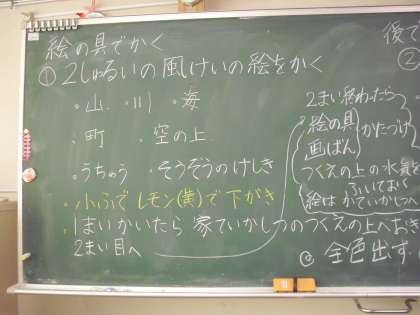 絵の具でかく
①2しゅるいの風けいの絵をかく
・山 ・川 ・海
・町 ・空の上
・うちゅう ・そうぞうのけしき
・小ふで レモン(黄)で下がき
・1まいかいたら 家ていかしつのつくえの上へおき
2まい目へ
2まい終わったら
絵の具
画ばん
かたづけ
つくえの上の水気を
ふいておく
絵は かていかしつへ
全色出す
後で
②